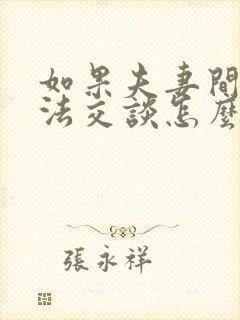 如果夫妻間
法交談怎麼
張永祥